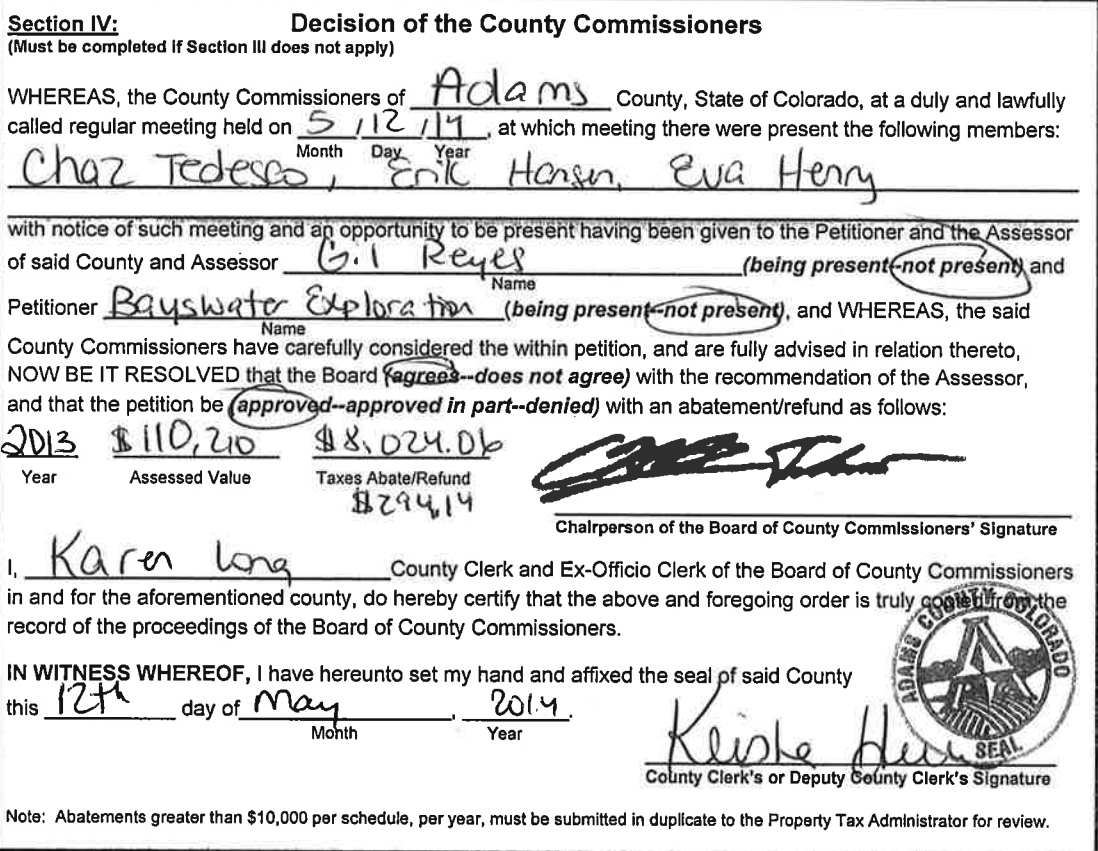 Section IV: Decision of the County Commissioners
(Must be completed if Section III does not apply)
WHEREAS, the County Commissioners of Adams County, State of Colorado, at a duly and lawfully
called regular meeting held on 5 / 12 / 14, at which meeting there were present the following members:
Month Day Year
Chaz Tedesco, Erik Hansen, Eva Henry
with notice of such meeting and an opportunity to be present having been given to the Petitioner and the Assessor
of said County and Assessor Gil Reyes (being present--not present) and
Name
Petitioner Bayswater Exploration (being present--not present), and WHEREAS, the said
Name
County Commissioners have carefully considered the within petition, and are fully advised in relation thereto,
NOW BE IT RESOLVED that the Board (agrees--does not agree) with the recommendation of the Assessor,
and that the petition be (approved--approved in part--denied) with an abatement/refund as follows:
2013 $110,210 $8,024.06
Year Assessed Value Taxes Abate/Refund
$294.14
Chairperson of the Board of County Commissioners' Signature
I, Karen Long County Clerk and Ex-Officio Clerk of the Board of County Commissioners
in and for the aforementioned county, do hereby certify that the above and foregoing order is truly copied from the
record of the proceedings of the Board of County Commissioners.
IN WITNESS WHEREOF, I have hereunto set my hand and affixed the seal of said County
this 12th day of May, 2014.
Month Year
ADAMS COUNTY COLORADO
SEAL
Keisha
County Clerk's or Deputy County Clerk's Signature
Note: Abatements greater than $10,000 per schedule, per year, must be submitted in duplicate to the Property Tax Administrator for review.